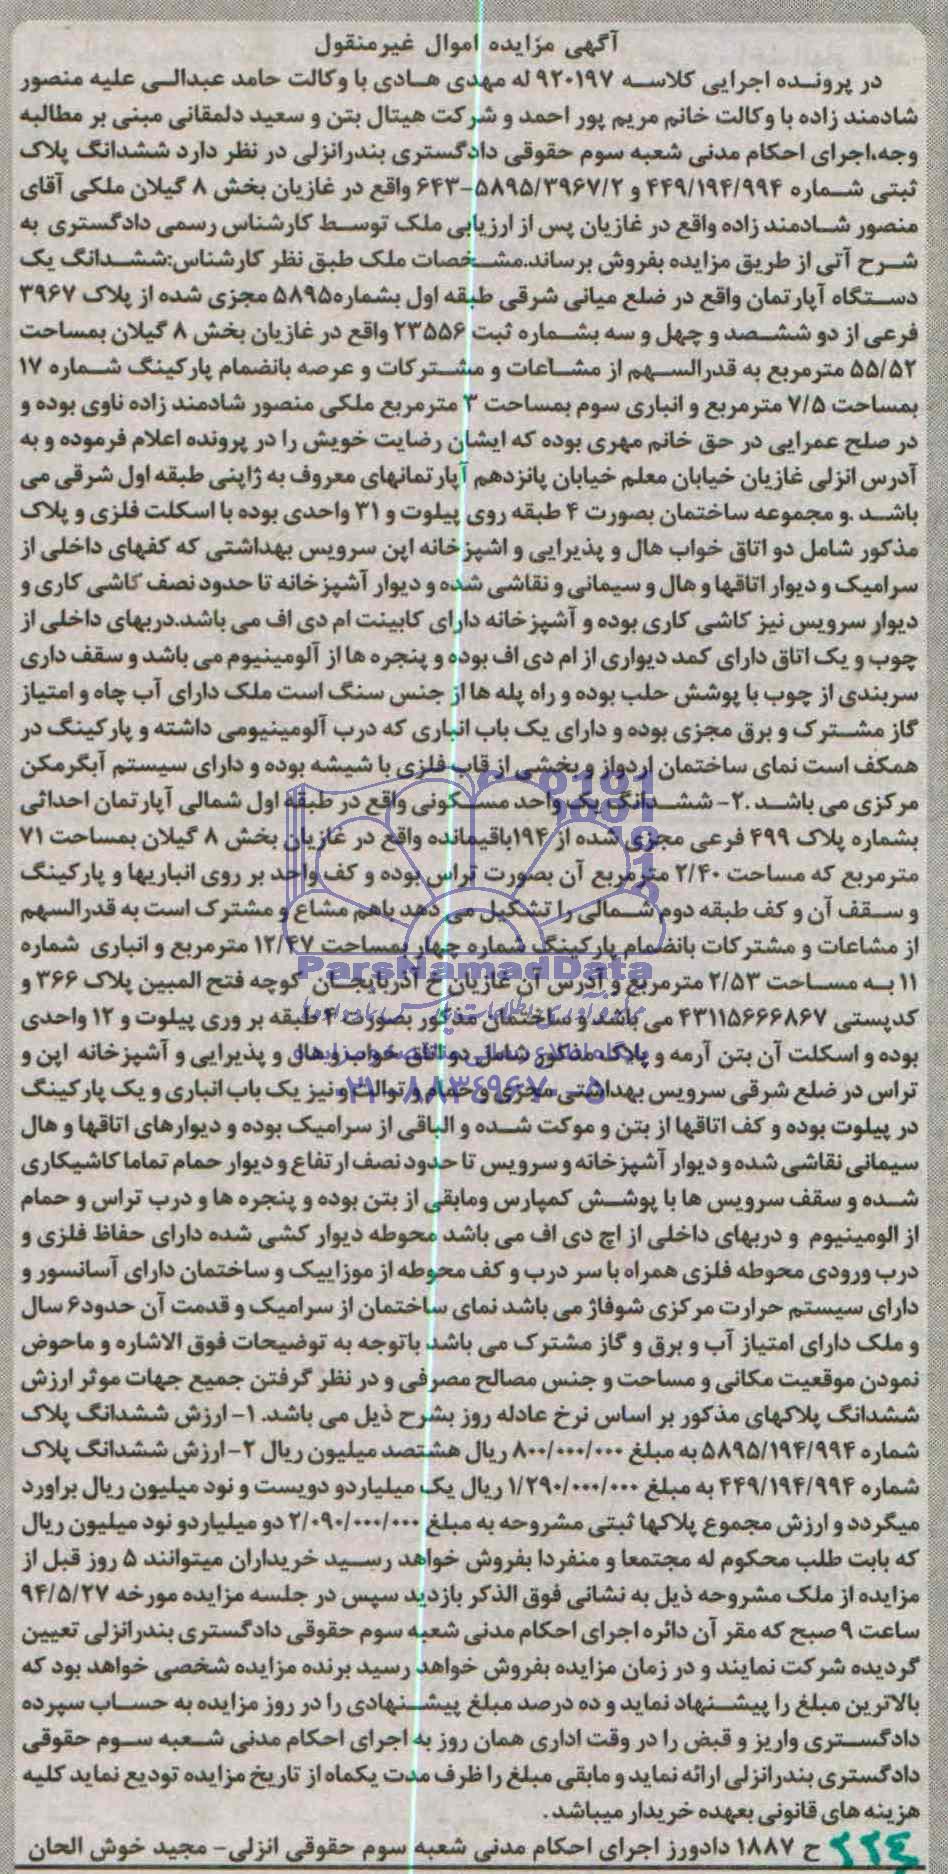 آگهی مزایده اموال غیرمنقول
در پرونده اجرایی کلاسه ۹۲۰۱۹۷ له مهدی هادی با وکالت حامد عبدالی علیه منصور
شادمند زاده با وکالت خانم مریم پور احمد و شرکت هیتال بتن و سعید دلمقانی مبنی بر مطالبه
وجه،اجرای احکام مدنی شعبه سوم حقوقی دادگستری بندرانزلی در نظر دارد ششدانگ پلاک
ثبتی شماره ۴۴۹/۱۹۴/۹۹۴ و ۶۴۳-۵۸۹۵/۳۹۶۷/۲ واقع در غازیان بخش ۸ گیلان ملکی آقای
منصور شادمند زاده واقع در غازیان پس از ارزیابی ملک توسط کارشناس رسمی دادگستری به
شرح آتی از طریق مزایده بفروش برساند.مشخصات ملک طبق نظر کارشناس:ششدانگ یک
دستگاه آپارتمان واقع در ضلع میانی شرقی طبقه اول بشماره۵۸۹۵ مجزی شده از پلاک ۳۹۶۷
فرعی از دو ششصد و چهل و سه بشماره ثبت ۲۳۵۵۶ واقع در غازیان بخش ۸ گیلان بمساحت
۵۵/۵۲ مترمربع به قدرالسهم از مشاعات و مشترکات و عرصه بانضمام پارکینگ شماره ۱۷
بمساحت ۷/۵ مترمربع و انباری سوم بمساحت ۳ مترمربع ملکی منصور شادمند زاده ناوی بوده و
در صلح عمرایی در حق خانم مهری بوده که ایشان رضایت خویش را در پرونده اعلام فرموده و به
آدرس انزلی غازیان خیابان معلم خیابان پانزدهم آپارتمانهای معروف به ژاپنی طبقه اول شرقی می
باشد .و مجموعه ساختمان بصورت ۴ طبقه روی پیلوت و ۳۱ واحدی بوده با اسکلت فلزی و پلاک
مذکور شامل دو اتاق خواب هال و پذیرایی و اشپزخانه اپن سرویس بهداشتی که کفهای داخلی از
سرامیک و دیوار اتاقها و هال و سیمانی و نقاشی شده و دیوار آشپزخانه تا حدود نصف کاشی کاری و
دیوار سرویس نیز کاشی کاری بوده و آشپزخانه دارای کابینت ام دی اف می باشد.دربهای داخلی از
چوب و یک اتاق دارای کمد دیواری از ام دی اف بوده و پنجره ها از آلومینیوم می باشد و سقف داری
سربندی از چوب با پوشش حلب بوده و راه پله ها از جنس سنگ است ملک دارای آب چاه و امتیاز
گاز مشترک و برق مجزی بوده و دارای یک باب انباری که درب آلومینیومی داشته و پارکینگ در
همکف است نمای ساختمان اردواز و بخشی از قاب فلزی با شیشه بوده و دارای سیستم آبگرمکن
مرکزی می باشد .۲- ششدانگ یک واحد مسکونی واقع در طبقه اول شمالی آپارتمان احداثی
بشماره پلاک ۴۹۹ فرعی مجزی شده از ۱۹۴باقیمانده واقع در غازیان بخش ۸ گیلان بمساحت ۷۱
مترمربع که مساحت ۲/۴۰ مترمربع آن بصورت تراس بوده و کف واحد بر روی انباریها و پارکینگ
و سقف آن و کف طبقه دوم شمالی را تشکیل می دهد باهم مشاع و مشترک است به قدرالسهم
از مشاعات و مشترکات بانضمام پارکینگ شماره چهار بمساحت ۱۲/۴۷ مترمربع و انباری شماره
۱۱ به مساحت ۲/۵۳ مترمربع و آدرس آن غازیان خ آذربایجان کوچه فتح المبین پلاک ۳۶۶ و
کدپستی ۴۳۱۱۵۶۶۶۸۶۷ می باشد و ساختمان مذکور بصورت ۴ طبقه بر وری پیلوت و ۱۲ واحدی
بوده و اسکلت آن بتن آرمه و پلاک مذکور شامل دو اتاق خواب و هال و پذیرایی و آشپزخانه اپن و
تراس در ضلع شرقی سرویس بهداشتی مجزی و حمام و توالت و نیز یک باب انباری و یک پارکینگ
در پیلوت بوده و کف اتاقها از بتن و موکت شده و الباقی از سرامیک بوده و دیوارهای اتاقها و هال
سیمانی نقاشی شده و دیوار آشپزخانه و سرویس تا حدود نصف ارتفاع و دیوار حمام تماما کاشیکاری
شده و سقف سرویس ها با پوشش کمپارس ومابقی از بتن بوده و پنجره ها و درب تراس و حمام
از الومینیوم و دربهای داخلی از اچ دی اف می باشد محوطه دیوار کشی شده دارای حفاظ فلزی و
درب ورودی محوطه فلزی همراه با سر درب و کف محوطه از موزاییک و ساختمان دارای آسانسور و
دارای سیستم حرارت مرکزی شوفاژ می باشد نمای ساختمان از سرامیک و قدمت آن حدود۶ سال
و ملک دارای امتیاز آب و برق و گاز مشترک می باشد باتوجه به توضیحات فوق الاشاره و ماحوض
نمودن موقعیت مکانی و مساحت و جنس مصالح مصرفی و در نظر گرفتن جمیع جهات موثر ارزش
ششدانگ پلاکهای مذکور بر اساس نرخ عادله روز بشرح ذیل می باشد. ۱- ارزش ششدانگ پلاک
شماره ۵۸۹۵/۱۹۴/۹۹۴ به مبلغ ۸۰۰/۰۰۰/۰۰۰ ریال هشتصد میلیون ریال ۲- ارزش ششدانگ پلاک
شماره ۴۴۹/۱۹۴/۹۹۴ به مبلغ ۱/۲۹۰/۰۰۰/۰۰۰ ریال یک میلیاردو دویست و نود میلیون ریال براورد
میگردد و ارزش مجموع پلاکها ثبتی مشروحه به مبلغ ۲/۰۹۰/۰۰۰/۰۰۰ دو میلیاردو نود میلیون ریال
که بابت طلب محکوم له مجتمعا و منفردا بفروش خواهد رسید خریداران میتوانند ۵ روز قبل از
مزایده از ملک مشروحه ذیل به نشانی فوق الذکر بازدید سپس در جلسه مزایده مورخه ۹۴/۵/۲۷
ساعت ۹ صبح که مقر آن دائره اجرای احکام مدنی شعبه سوم حقوقی دادگستری بندرانزلی تعیین
گردیده شرکت نمایند و در زمان مزایده بفروش خواهد رسید برنده مزایده شخصی خواهد بود که
بالاترین مبلغ را پیشنهاد نماید و ده درصد مبلغ پیشنهادی را در روز مزایده به حساب سپرده
دادگستری واریز و قبض را در وقت اداری همان روز به اجرای احکام مدنی شعبه سوم حقوقی
دادگستری بندرانزلی ارائه نماید و مابقی مبلغ را ظرف مدت یکماه از تاریخ مزایده تودیع نماید کلیه
هزینه های قانونی بعهده خریدار میباشد .
۲۲۴ ح ۱۸۸۷ دادورز اجرای احکام مدنی شعبه سوم حقوقی انزلی- مجید خوش الحان
ParsNamadData
۰۲۱-۸۸۳۴۹۶۷۰-۵